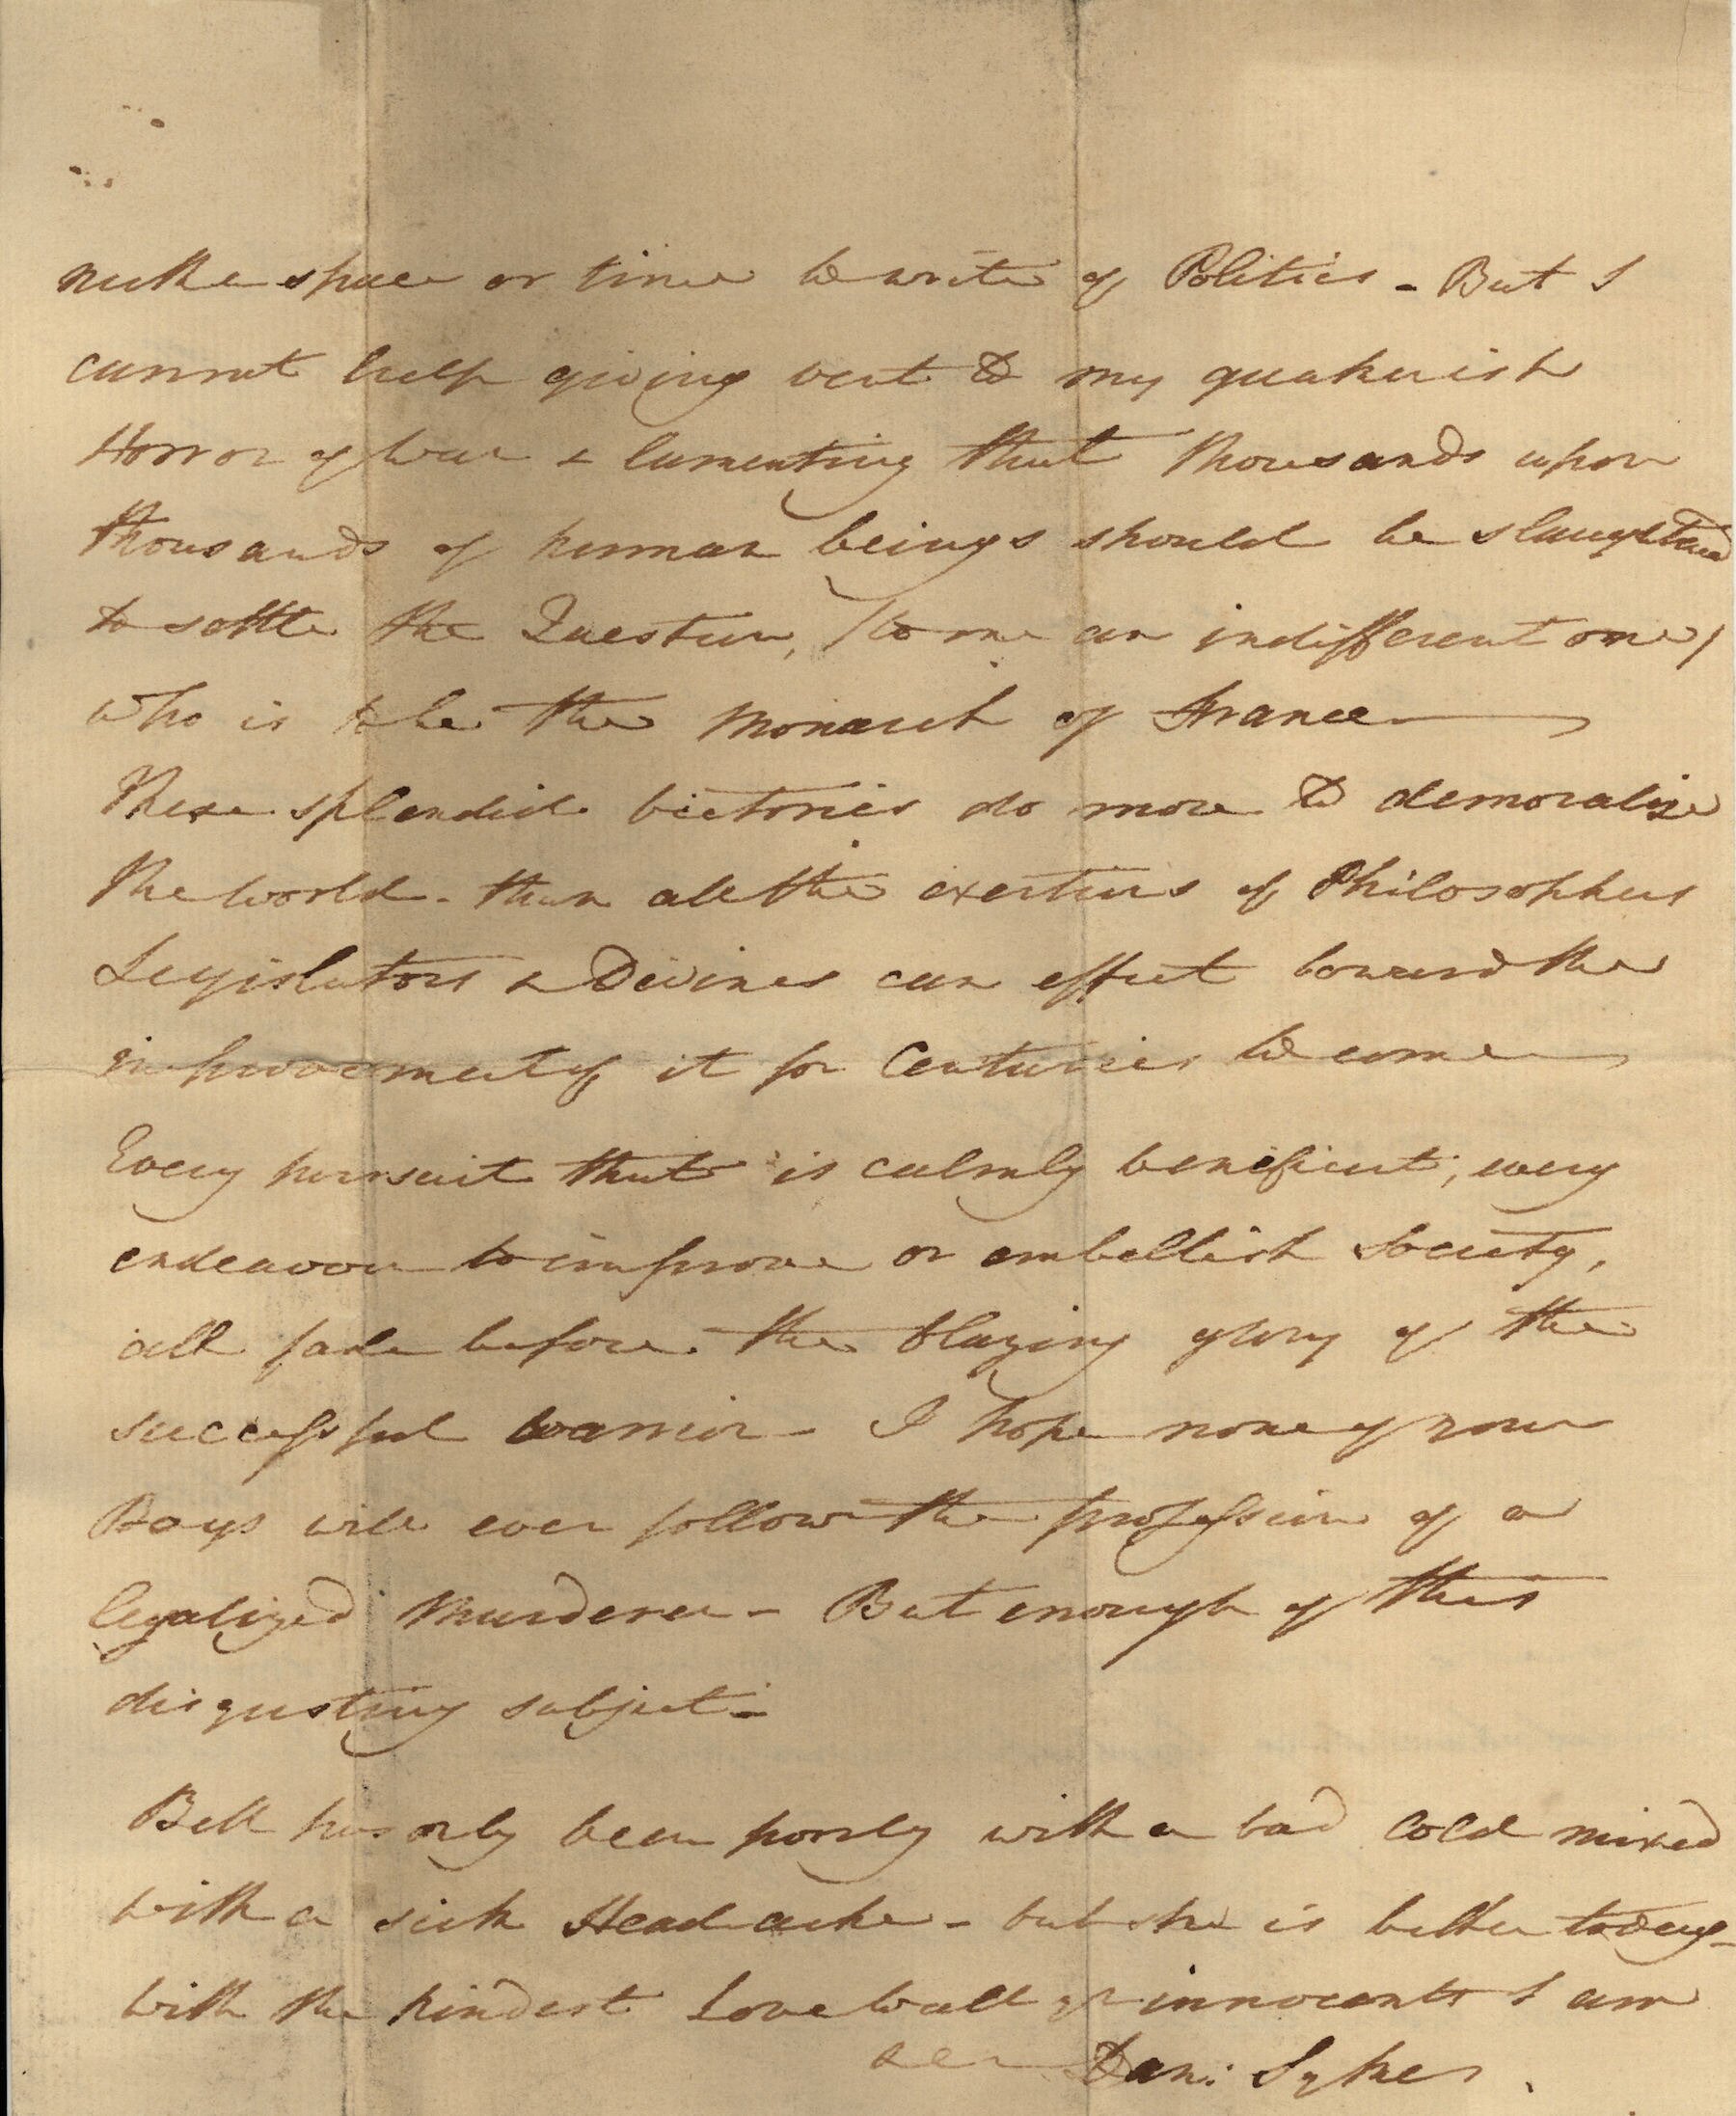 neither space or time to write of Politics - But I
cannot help giving vent to my quakerish
Horror of War & lamenting that thousands upon
thousands of human beings should be slaughtered
to settle the Question, (to me an indifferent one)
who is to be the Monarch of France
These splendid victories do more to demoralize
the World - than all the exertions of Philosophers
Legislators & Divines can effect toward the
improvement of it for Centuries to come
Every pursuit that is calmly beneficent, every
endeavour to improve or embellish Society,
all fade before the blazing glory of the
successful warrior - I hope none of your
Boys will ever follow the profession of a
legalized Murderer - But enough of this
disgusting subject -
Bell has only been poorly with a bad Cold mixed
with a sick Head ache - but she is better today -
with the kindest Love to all yr innocents I am
Dan: Sykes